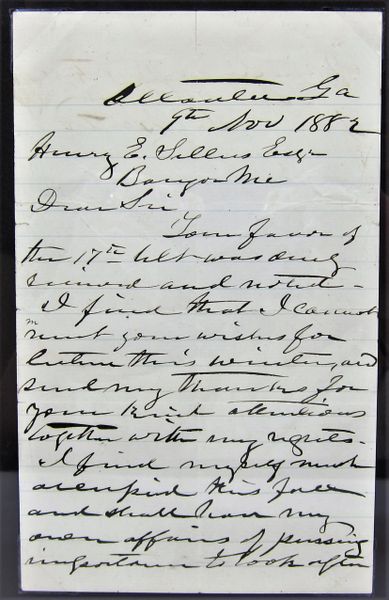 Atlanta Ga
9th Nov 1882
Henry E. Sellers Esqr
Bangor Me
Dear Sir
Your favor of
the 17th Ult was duly
received and noted -
I find that I cannot
meet your wishes for
lecture this winter, and
send my thanks for
your kind attentions
together with my regrets -
I find myself much
occupied this fall
and shall have my
own affairs of pressing
importance to look after